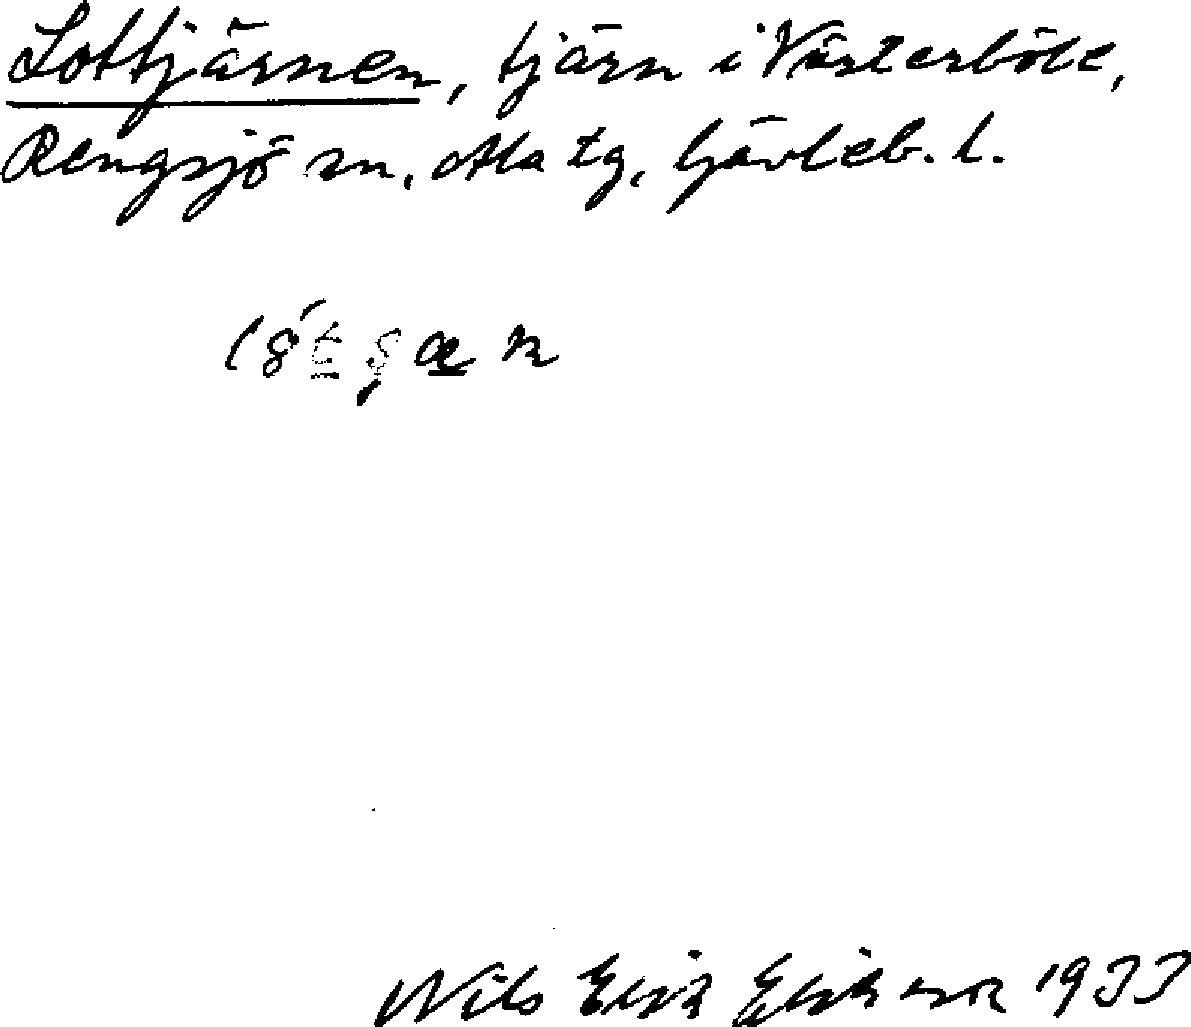 Lottjärnen, tjärn i Västerböle,
Rengsjö sn, Ala tg, Gävleb. l.
Nils Erik Eriksson 1933